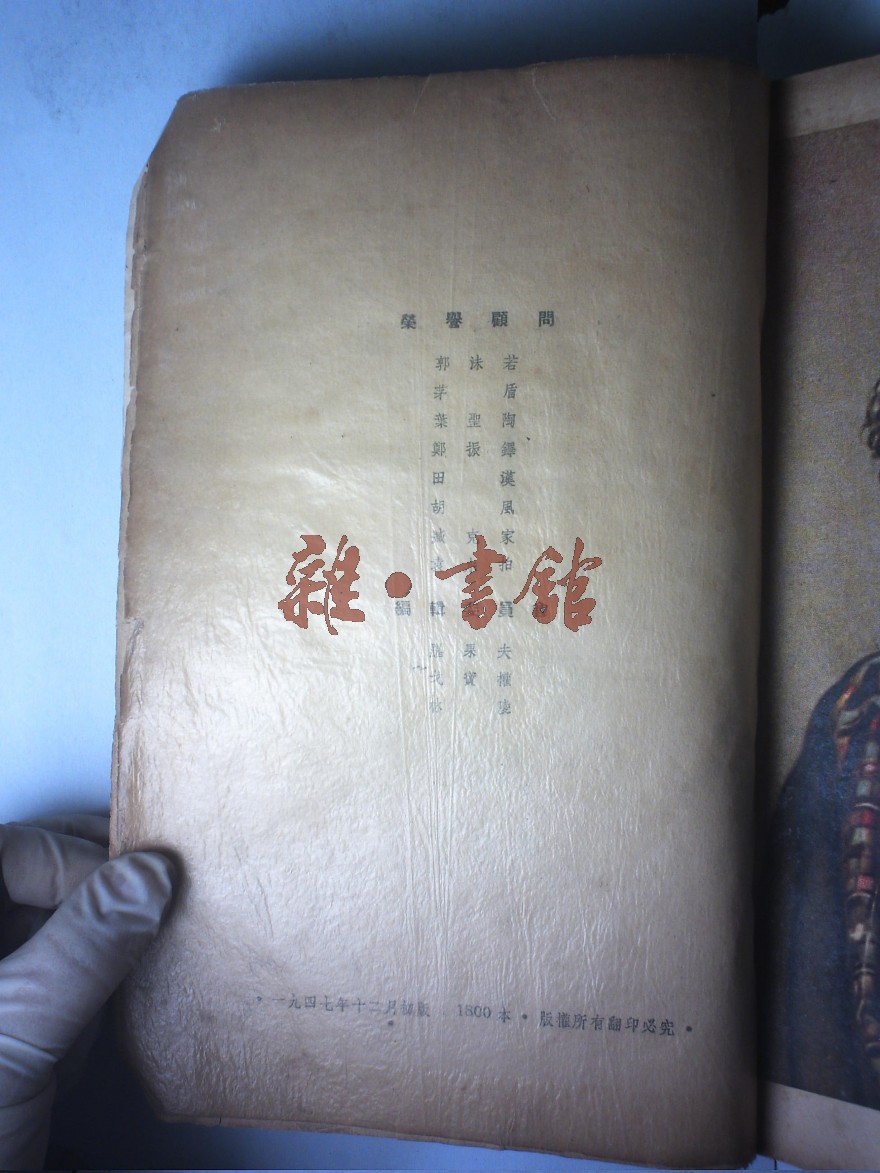 榮譽顧問
郭沫若
茅盾
葉聖陶
鄭振鐸
田漢
胡風
臧克家
家拍
雜·書館
編輯 員
夫
一九四七年十二月初版 · 1800本 · 版權所有翻印必究 ·